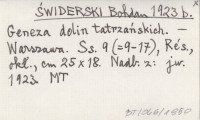 ŚWIDERSKI Bohdan 1923 b. x
Geneza dolin tatrzańskich. —
Warszawa. Ss. 9 (=9-17), Rés.,
okł., cm 25 x 18. Nadb. z: jw.
1923. MT
DT/1066/1980